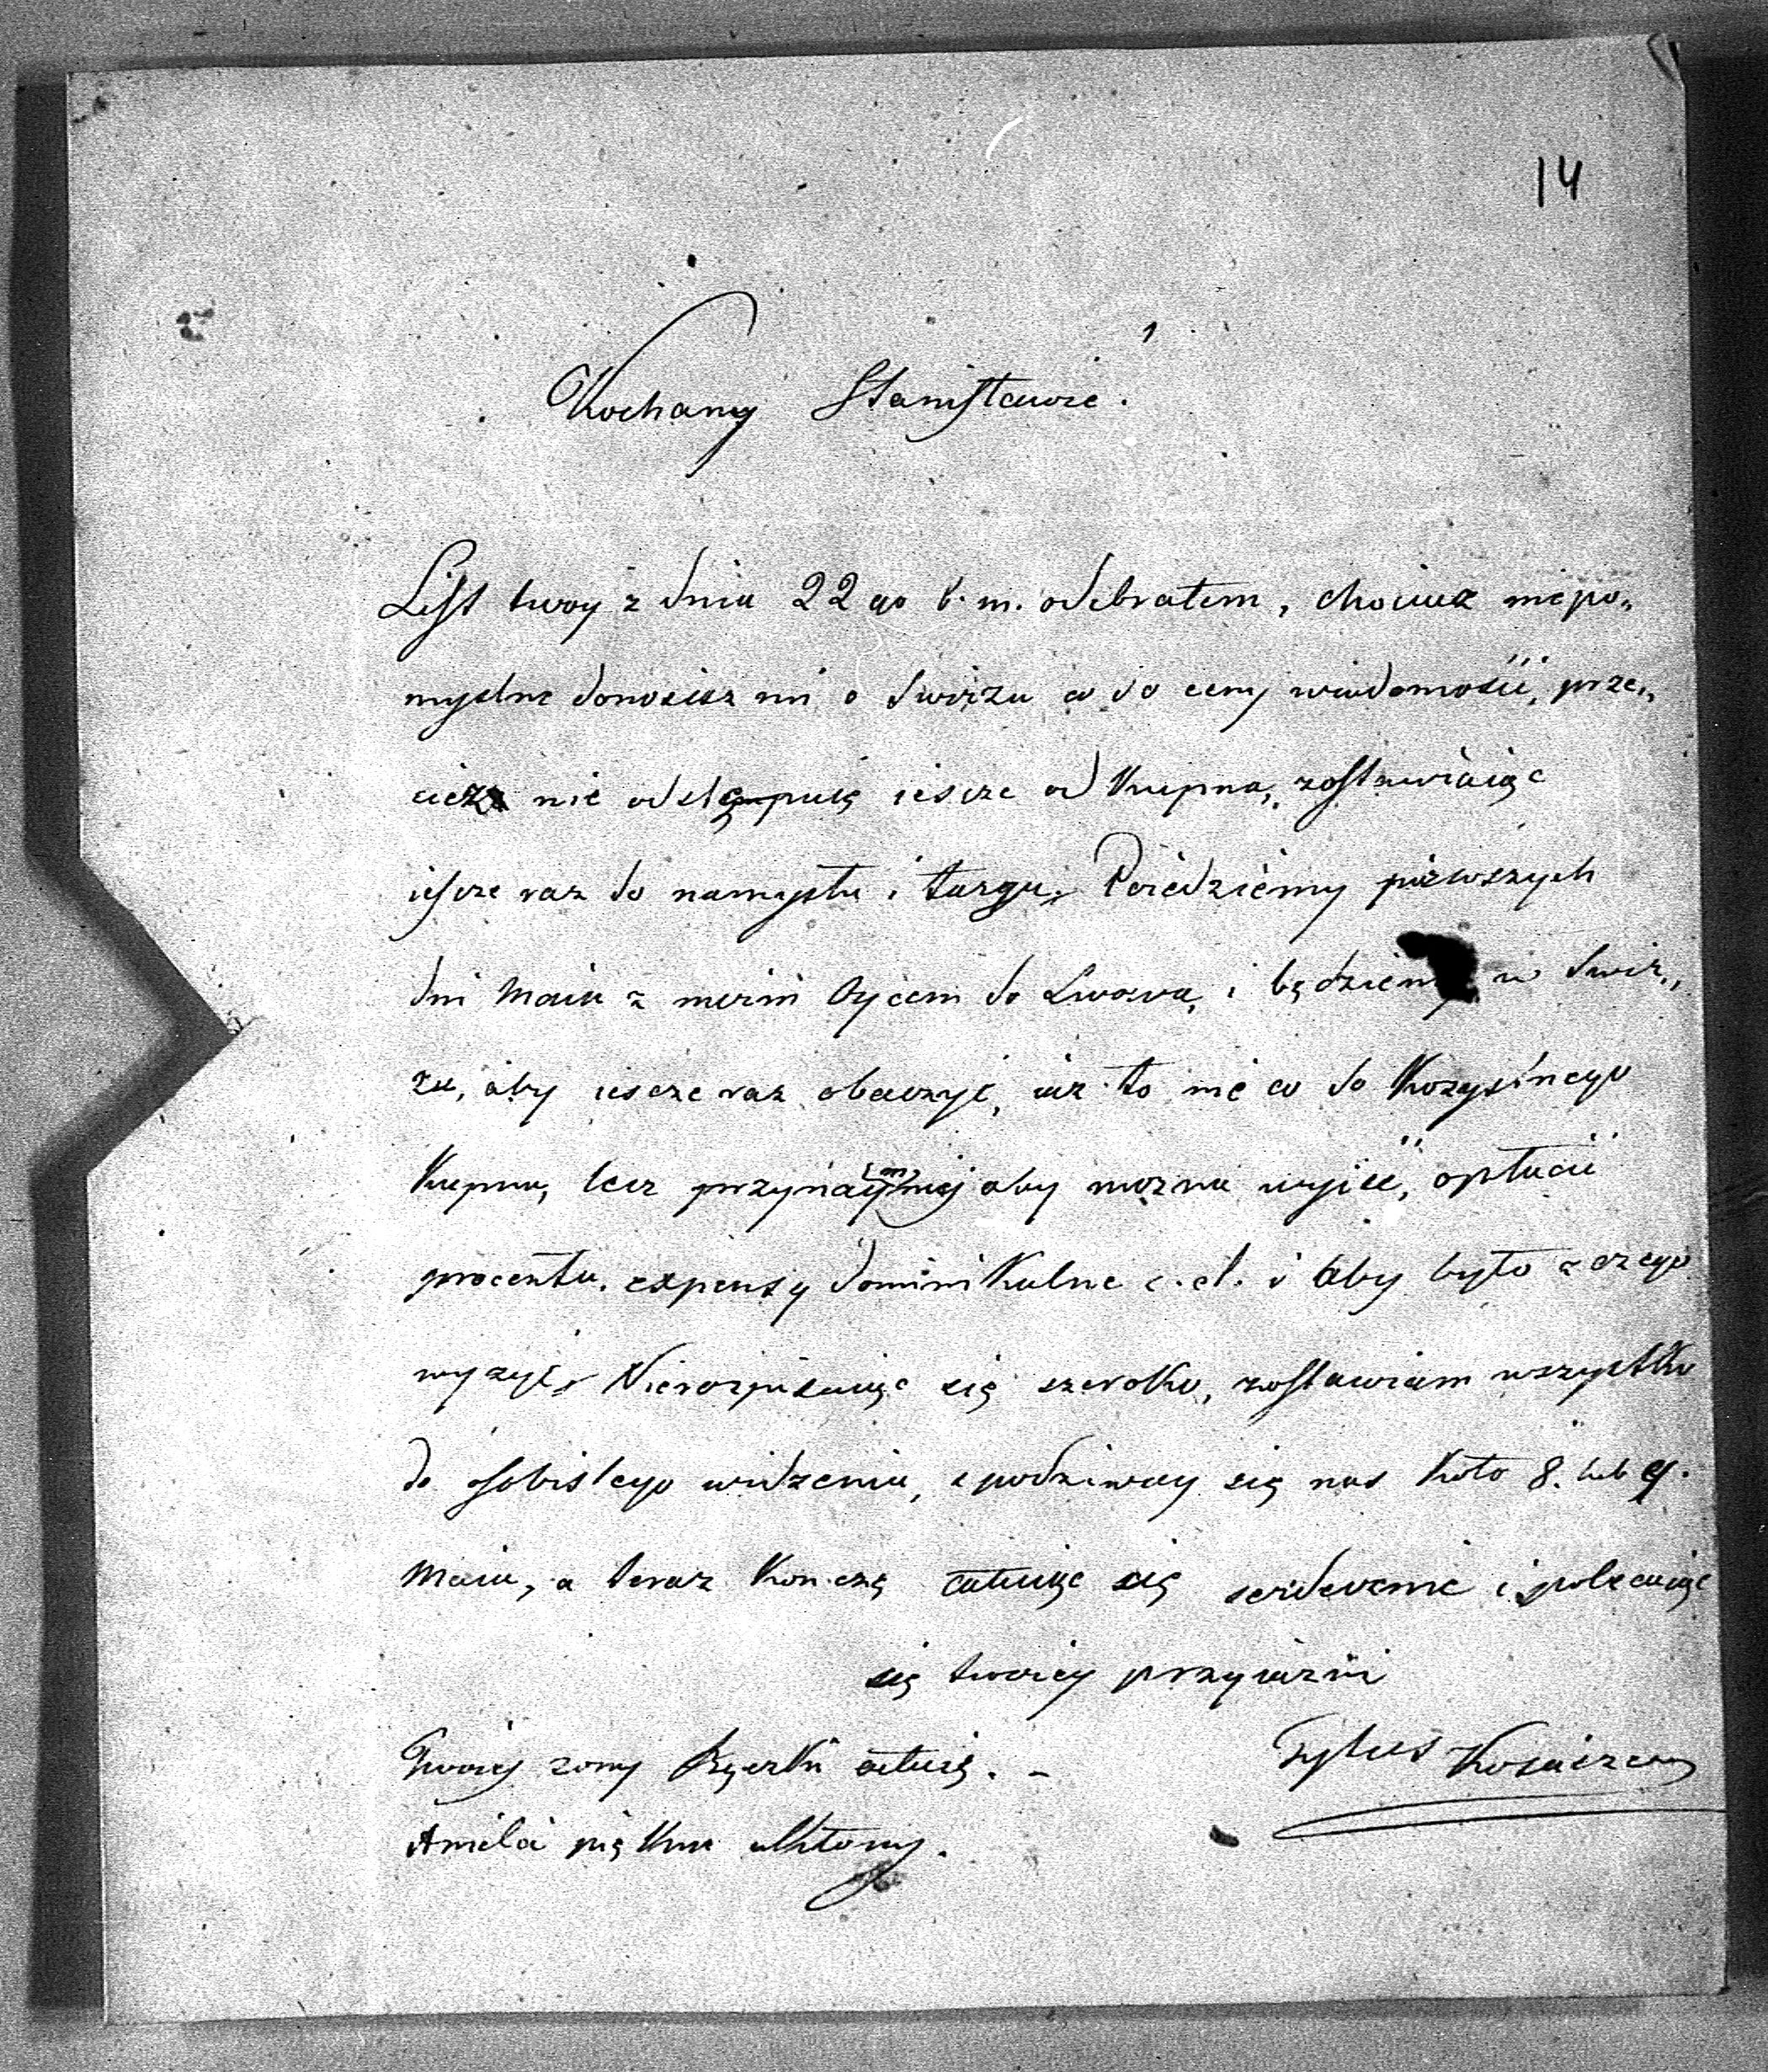 14
Kochany Stanisławie!
List twoy z dnia 22go b. m. odebrałem, chociaz niepo„
myslne donosisz mi o Swirzu co do ceny wiadomości, prze„
ciez nie odstępuię iescze od Kupna, zostawiaiąc
iescze raz do namysłu i targu. Poiedziemy pierwszych
dni Maia z moim Oycem do Lwowa, i będziemy w Swir„
zu, aby iescze raz obaczyć, iuz to nie co do Kozystnego
Kupna, lecz przynaymniey aby mozna wyiść, opłacić
procenta, expensy dominikalne c. et. i aby było z czego
wyzyć. Nierozpisuiąc się szeroko, zostawiam wszystko
do osobistego widzenia, spodziway się nas koło 8. lub 9.
Maia, a teraz koncze całuiąc cię serdecznie i polecaiąc
się twoiey przyiazni
Twoiey zony Rączki całuię. –
Tytus
Anieli piękne ukłony.